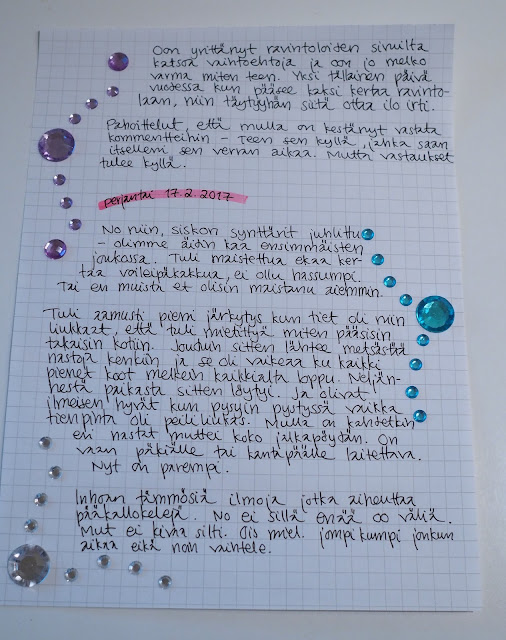 Oon yrittänyt ravintoloiden sivuilta
katsoa vaihtoehtoja ja oon jo melko
varma miten teen. Yksi tällainen päivä
vuodessa kun pääsee kaksi kertaa ravinto-
laan, niin täytyyhän siitä ottaa ilo irti.
Pahoittelut, että mulla on kestänyt vastata
kommentteihin – Teen sen kyllä, jahka saan
itselleni sen verran aikaa. Mutta vastaukset
tulee kyllä.
perjantai 17.2.2017
No niin, siskon synttärit juhlittu
– olimme äidin kaa ensimmäisten
joukossa. Tuli maistettua ekaa ker-
taa voileipäkakkua, ei ollu hassumpi.
Tai en muista et olisin maistanu aiemmin.
Tuli aamusti pieni järkytys kun tiet oli niin
liukkaat, että tuli mietittyä miten pääsisin
takaisin kotiin. Jouduin sitten lähtee metsästää
nastoja kenkiin ja se oli vaikeaa ku kaikki
pienet koot melkein kaikkialta loppu. Neljän-
nestä paikasta sitten löytyi. Ja olivat
ilmeisen hyvät kun pysyin pystyssä vaikka
tienpinta oli peililiukas. Mulla on kahdetkin
eri nastat muttei koko jalkapöydän. On
vaan päkiälle tai kantapäälle laitettava.
Nyt on parempi.
Inhoan tämmösiä ilmoja jotka aiheuttaa
pääkallokelejä. No ei sillä enää oo väliä.
Mut ei kivaa silti. Ois miel. jompikumpi jonkun
aikaa eikä noin vaihtele.